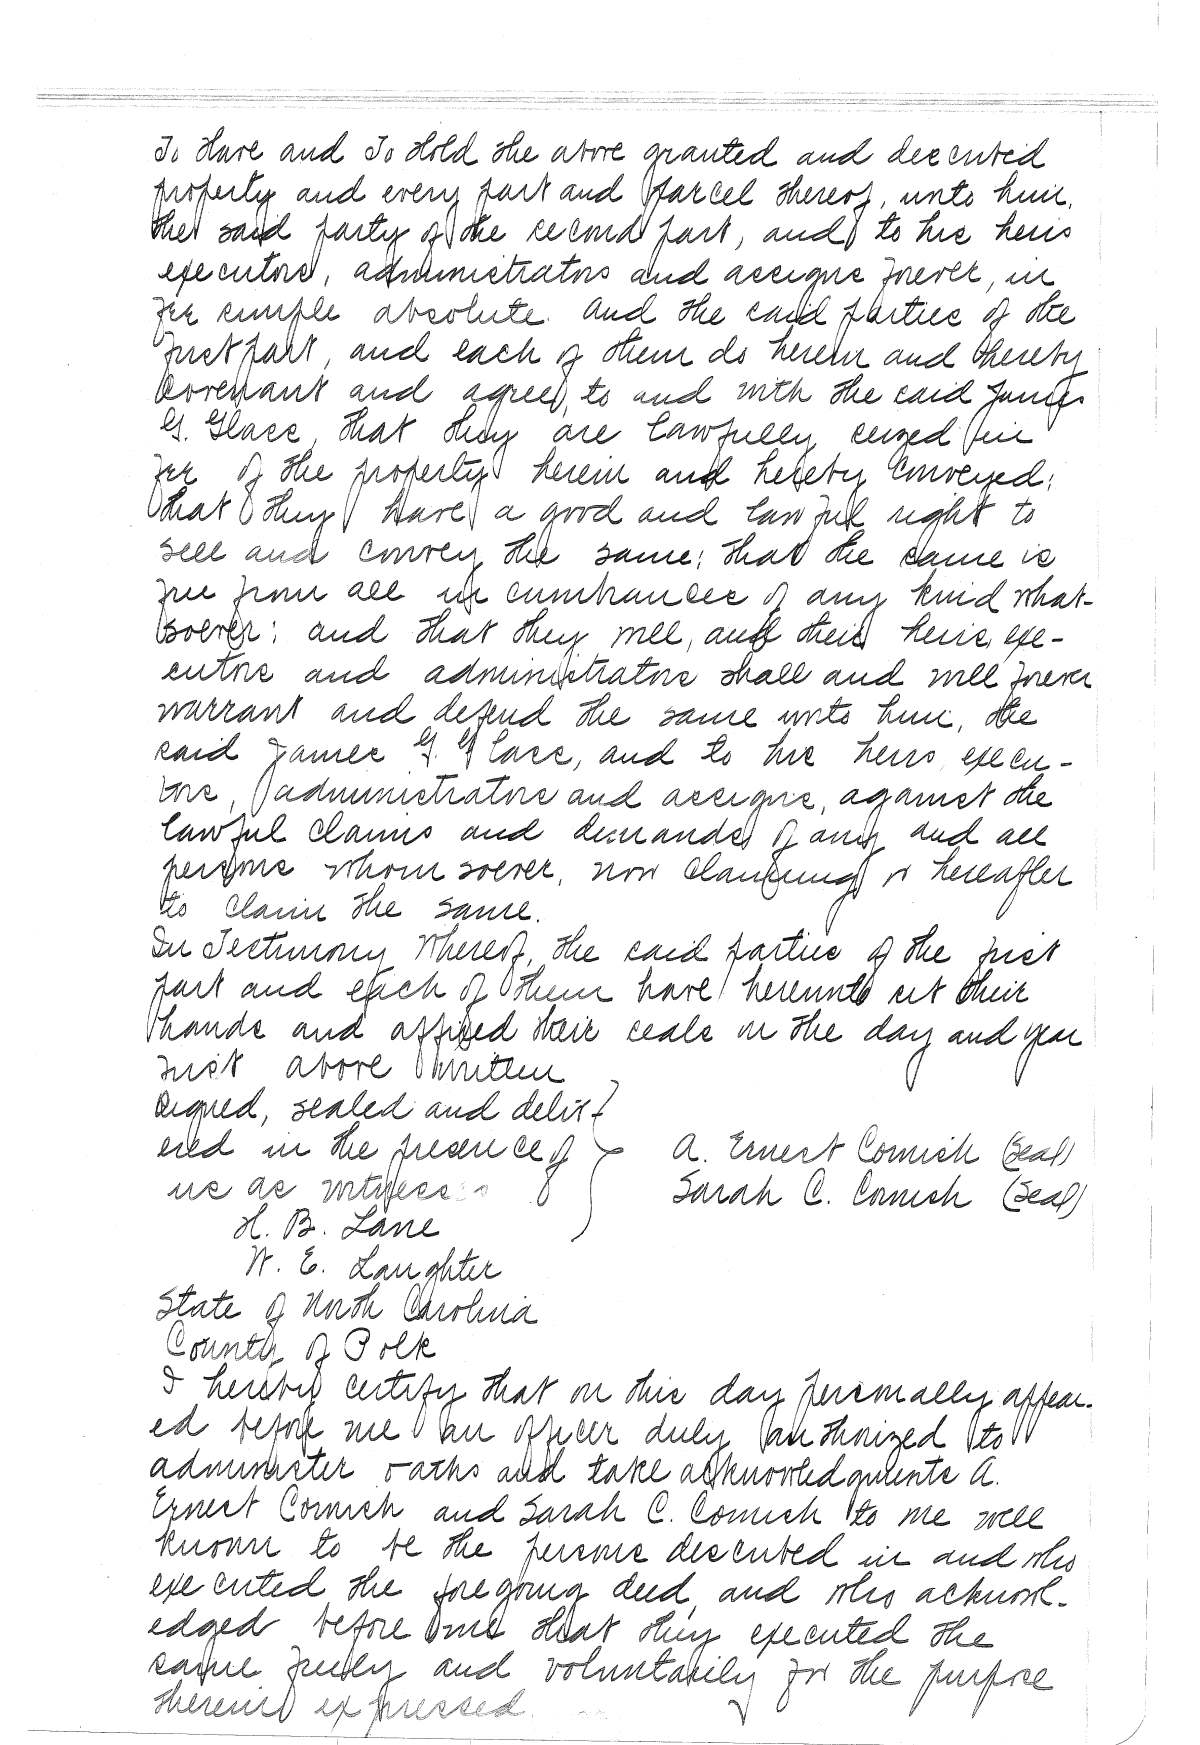 To Have and To Hold the above granted and described
property and every part and parcel thereof, unto him,
the said party of the second part, and to his heirs
executors, administrators and assigns forever, in
fee simple absolute. And the said parties of the
first part, and each of them do herein and hereby
Covenant and agree, to and with the said James
G. Glass, that they are lawfully seized in
fee of the property herein and hereby Conveyed;
that they have a good and lawful right to
sell and convey the same; that the same is
free from all in cumbrances of any kind what-
soever; and that they will, and their heirs, exe-
cutors and administrators shall and will forever
warrant and defend the same unto him, the
said James G. Glass, and to his heirs, execu-
tors, administrators and assigns, against the
lawful claims and demands of any and all
persons whom soever, now claiming or hereafter
to claim the same.
In Testimony Whereof, the said parties of the first
part and each of them have hereunto set their
hands and affixed their seals on the day and year
first above written
Signed, sealed and deliv-
ered in the presence of
us as witness
A. Ernest Cornish (Seal)
Sarah C. Cornish (Seal)
H. B. Lane
W. E. Laughter
State of North Carolina
County of Polk
I hereby certify that on this day personally appear-
ed before me an officer duly authorized to
administer oaths and take acknowledgments A.
Ernest Cornish and Sarah C. Cornish to me well
known to be the persons described in and who
executed the foregoing deed, and who acknowl-
edged before me that they executed the
same freely and voluntarily for the purpose
therein expressed.